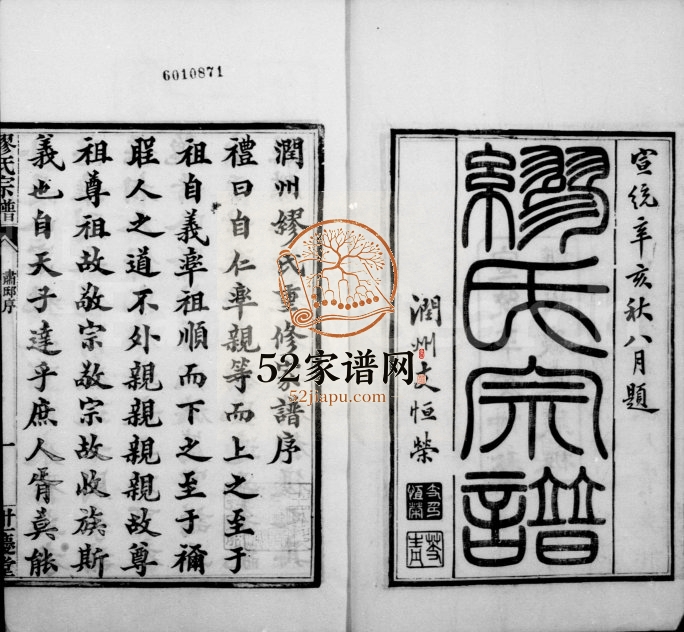 6010871
宣統辛亥秋八月題
繆氏宗譜
潤州支恒榮
潤州繆氏重修家譜序
禮曰自仁率親等而上之至于
祖自義率祖順而下之至于禰
是人之道不外親親親親故尊
祖尊祖故敬宗敬宗故收族斯
義也自天子達乎庶人胥莫能
繆氏宗譜
肅邸序
一
52家谱网
52jiapu.com